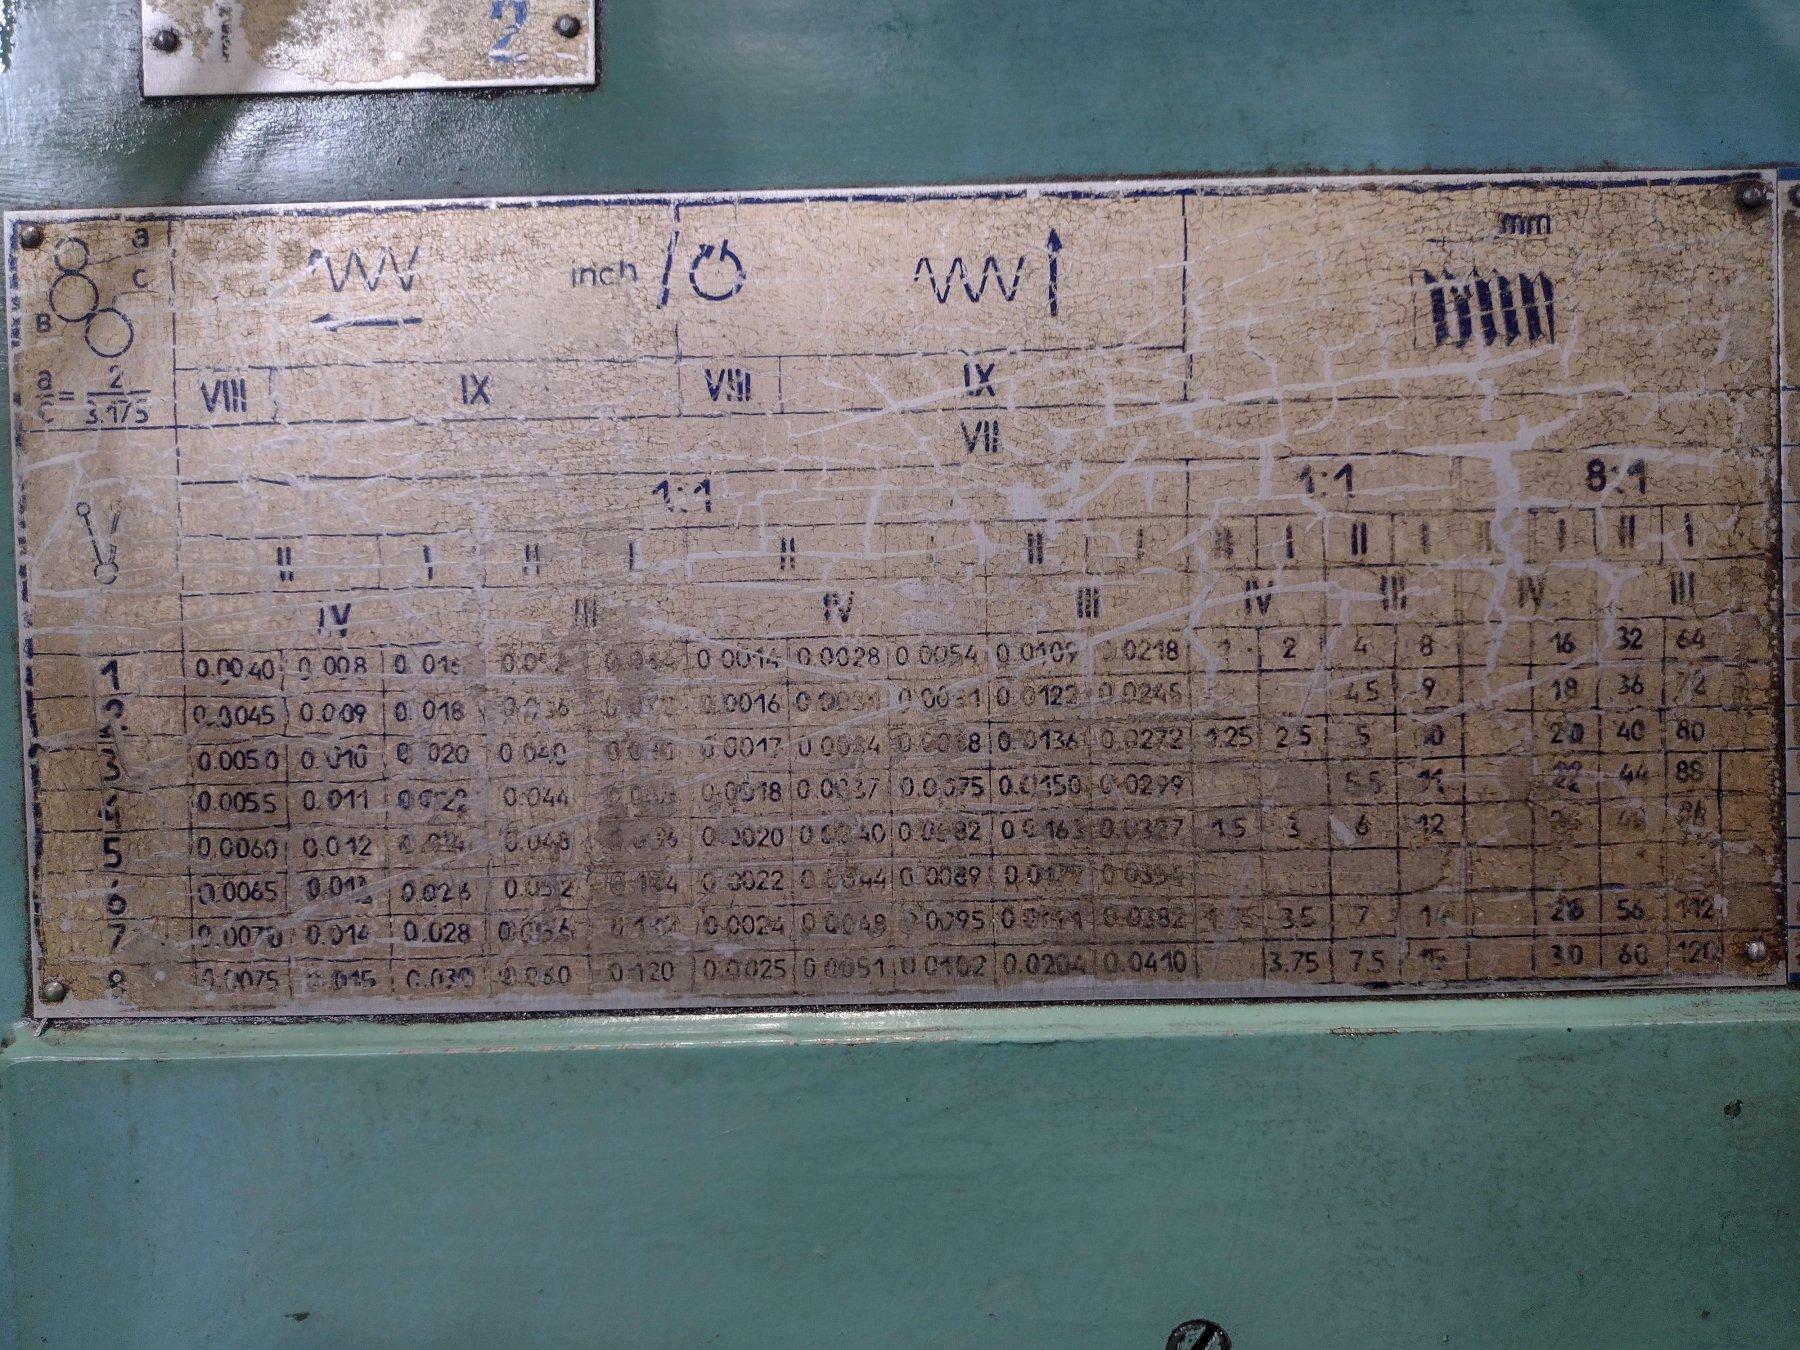 2
a
C
B
inch
mm
a/c = 2/3.175
VIII IX VIII IX
VII
1:1 1:1 8:1
II I II I II II I II I II I I II I
IV III IV III IV III IV III
1 0.0040 0.008 0.016 0.0014 0.0028 0.0054 0.0109 0.0218 1 2 4 8 16 32 64
2 0.0045 0.009 0.018 0.036 0.0016 0.0122 0.0245 4.5 9 18 36 72
3 0.0050 0.010 0.020 0.040 0.0017 0.0034 0.0068 0.0136 0.0272 1.25 2.5 5 10 20 40 80
4 0.0055 0.011 0.022 0.044 0.0018 0.0037 0.0075 0.0150 0.0299 5.5 11 22 44 88
5 0.0060 0.012 0.048 0.0020 0.0040 0.0082 0.0163 0.0327 1.5 3 6 12
6 0.0065 0.013 0.026 0.052 0.0022 0.0044 0.0089
7 0.0070 0.014 0.028 0.056 0.0024 0.0048 0.0095 0.0191 0.0382 1.75 3.5 7 14 28 56 112
8 0.0075 0.015 0.030 0.060 0.120 0.0025 0.0051 0.0102 0.0204 0.0410 3.75 7.5 15 30 60 120